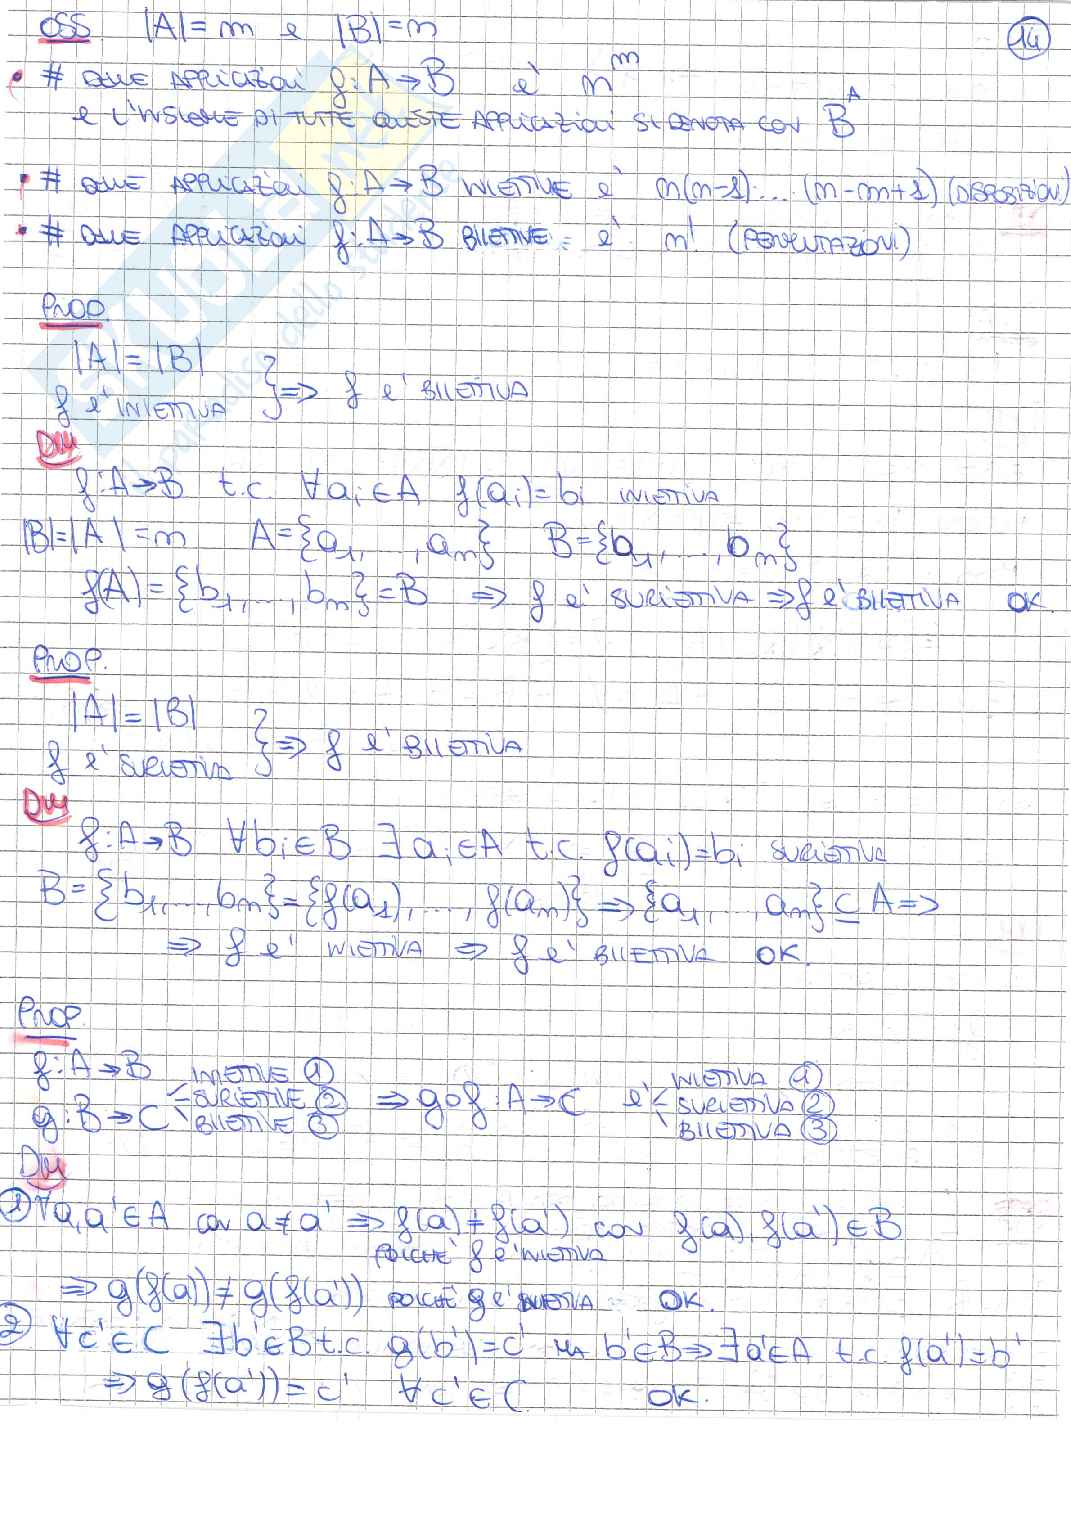 OSS. |A|=m e |B|=n
14
• # DELLE APPLICAZIONI f:A→B è n^m
e L'INSIEME DI TUTTE QUESTE APPLICAZIONI SI DENOTA CON B^A
• # DELLE APPLICAZIONI f:A→B INIETTIVE è n(n-1)·...(n-m+1) (DISPOSIZIONI)
• # DELLE APPLICAZIONI f:A→B BIIETTIVE è n! (PERMUTAZIONI)
PROP.
|A|=|B|
f è INIETTIVA } ⇒ f è BIIETTIVA
DIM
f:A→B t.c. ∀ai∈A f(ai)=bi INIETTIVA
|B|=|A|=n A={a1,...,an} B={b1,...,bn}
f(A)={b1,...,bn}=B ⇒ f è SURIETTIVA ⇒ f è BIIETTIVA OK.
PROP.
|A|=|B|
f è SURIETTIVA } ⇒ f è BIIETTIVA
DIM
f:A→B ∀bi∈B ∃ai∈A t.c. f(ai)=bi SURIETTIVA
B={b1,...,bn}={f(a1),...,f(an)} ⇒ {a1,...,an} ⊆ A ⇒
⇒ f è INIETTIVA ⇒ f è BIIETTIVA OK.
PROP.
f:A→B INIETTIVE ① INIETTIVA ①
g:B→C SURIETTIVE ② ⇒ g∘f:A→C è SURIETTIVA ②
BIIETTIVE ③ BIIETTIVA ③
DIM
① ∀a,a'∈A con a≠a' ⇒ f(a)≠f(a') con f(a),f(a')∈B
POICHÉ f è INIETTIVA
⇒ g(f(a))≠g(f(a')) POICHÉ g è INIETTIVA OK.
② ∀c'∈C ∃b'∈B t.c. g(b')=c' ma b'∈B ⇒ ∃a'∈A t.c. f(a')=b'
⇒ g(f(a'))=c' ∀c'∈C OK.